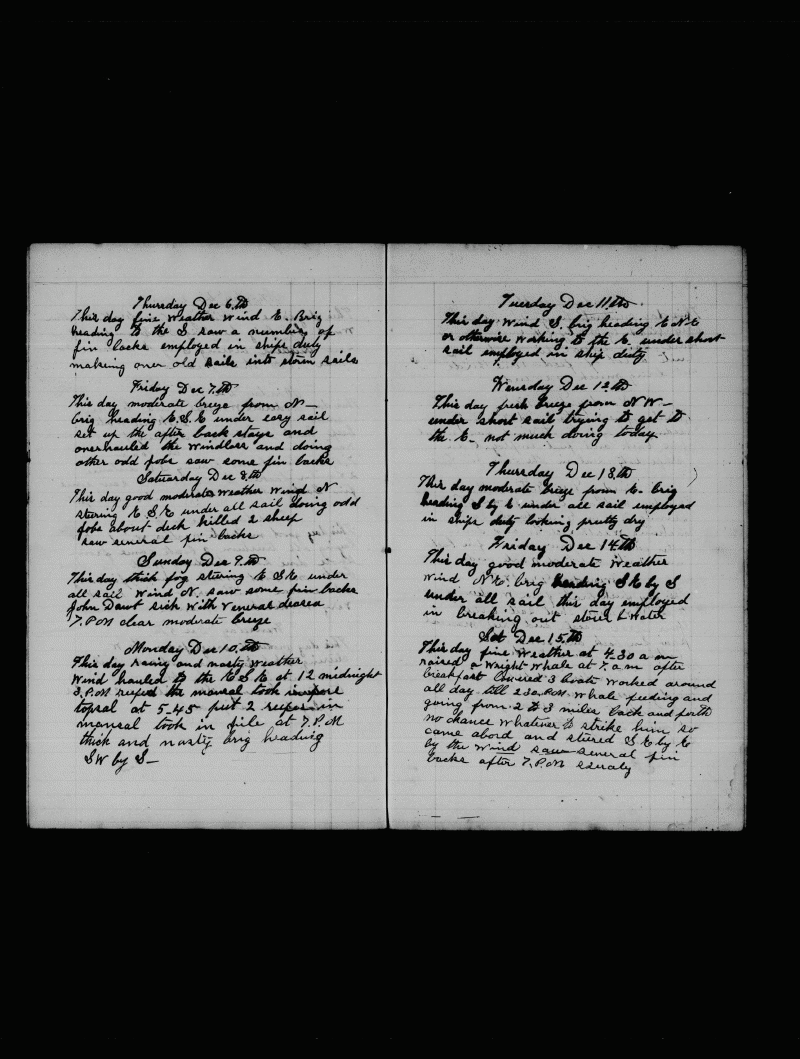 Thursday Dec 6.th
This day fine Weather Wind E. Brig
heading to the S saw a number of
fin backs employed in ships duty
making over old sails into storm sails
Friday Dec 7.th
This day moderate breeze from N—
brig heading E.S.E under easy sail
set up the after back stays and
overhauled the windlass and doing
other odd jobs saw some fin backs
Saturday Dec 8.th
This day good moderate Weather Wind N
stering E S E under all sail doing odd
jobs about deck killed 2 sheep
saw several fin backs
Sunday Dec 9.th
This day thick fog stering E SE under
all sail Wind N. saw some fin backs
John Dawt sick With Veneral
7.P.M clear moderate breeze
Monday Dec 10.th
This day rainy and nasty Weather
Wind hauled to the E S E at 12 midnight
3.P.M the mansal took
topsal at 5-45 put 2 in
mansal took in at 7.P.M
thick and nasty brig heading
SW by S—
Tuesday Dec 11.th
This day Wind S. brig heading E N E
or otherwise Working to the E under short
sail employed in ship duty
Wensday Dec 12th
This day fresh breeze from N W—
under short sail trying to get to
the E— not much doing today
Thursday Dec 13.th
This day moderate breeze from E- brig
heading S by E under all sail employed
in ships duty looking pretty dry
Friday Dec 14.th
This day good moderate Weather
Wind N.E. brig heading SE by S
under all sail this day employed
in breaking out stores & Water
Sat Dec 15.th
This day fine Weather at 4.30 a m
raised a Wright Whale at 7. a m after
breakfast lowered 3 boats Worked around
all day till 2 30. P.M. Whale feeding and
going from 2 to 3 miles back and forth
no chance Whatever to strike him so
came abord and stered S E by E
by the Wind saw several fin
backs after 7.P.M